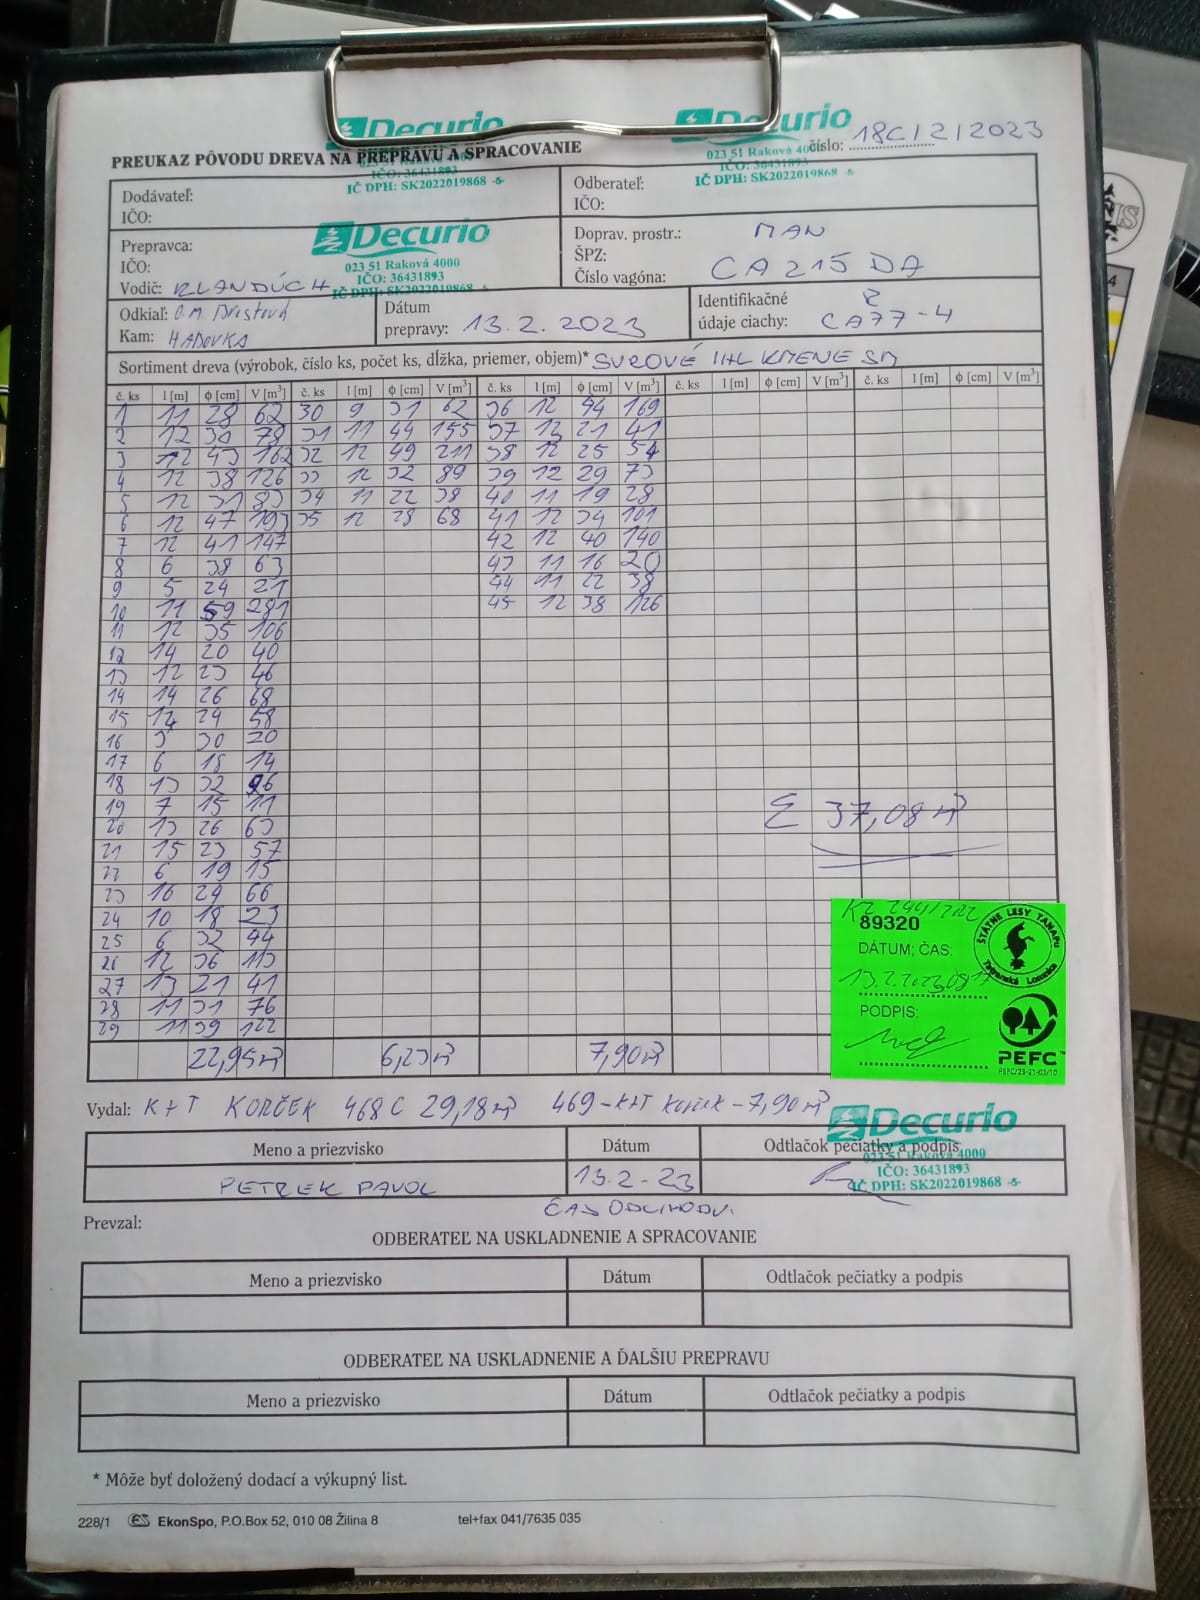 Decurio
023 51 Raková 4000
IČO: 36431893
IČ DPH: SK2022019868 -5-
Decurio
023 51 Raková 4000
IČO: 36431893
IČ DPH: SK2022019868 -5-
číslo: 18C/2/2023
PREUKAZ PÔVODU DREVA NA PREPRAVU A SPRACOVANIE
Dodávateľ:
IČO:
Odberateľ:
IČO:
Prepravca:
IČO:
Vodič: KLANDÚCH
Decurio
023 51 Raková 4000
IČO: 36431893
IČ DPH: SK2022019868 -5-
Doprav. prostr.: MAN
ŠPZ:
Číslo vagóna: CA215DA
Odkiaľ: O.M.
Kam: HABOVKA
Dátum
prepravy: 13.2.2023
Identifikačné
údaje ciachy: CA77-4
Sortiment dreva (výrobok, číslo ks, počet ks, dĺžka, priemer, objem)* SUROVÉ IHL KMENE SM
č. ks l [m] ϕ [cm] V [m³] č. ks l [m] ϕ [cm] V [m³] č. ks l [m] ϕ [cm] V [m³] č. ks l [m] ϕ [cm] V [m³] č. ks l [m] ϕ [cm] V [m³]
1 11 28 62 30 9 31 62 36 12 44 169
2 12 30 78 31 11 44 155 37 12 21 41
3 12 43 162 32 12 49 211 38 12 25 54
4 12 38 126 33 12 32 89 39 12 29 73
5 12 31 83 34 11 22 38 40 11 19 28
6 12 47 193 35 12 28 68 41 12 34 101
7 12 41 147 42 12 40 140
8 6 38 63 43 11 16 20
9 5 24 21 44 11 22 38
10 11 59 281 45 12 38 126
11 12 35 106
12 14 20 40
13 12 23 46
14 14 26 68
15 24 58
16 3 30 20
17 6 18 14
18 13 32 96
19 7 15 11
20 13 26 63
21 15 23 57
22 6 19 15
23 16 24 66
24 10 18 23
25 6 32 44
26 12 36 113
27 13 21 41
28 11 31 76
29 11 39 122
Σ 37,08 m³
22,95m³ 6,23m³ 7,90m³
89320
DÁTUM; ČAS:
13.2.2023
PODPIS:
ŠTÁTNE LESY TANAPU
Tatranská Lomnica
PEFC
PEFC/23-21-03/10
Vydal: K+T KORČEK 468C 29,18m³ 469-K+T - 7,90m³
Decurio
023 51 Raková 4000
IČO: 36431893
IČ DPH: SK2022019868 -5-
Meno a priezvisko Dátum Odtlačok pečiatky a podpis
PETREK PAVOL 13.2-23
ČAS ODCHODU.
Prevzal:
ODBERATEĽ NA USKLADNENIE A SPRACOVANIE
Meno a priezvisko Dátum Odtlačok pečiatky a podpis
ODBERATEĽ NA USKLADNENIE A ĎALŠIU PREPRAVU
Meno a priezvisko Dátum Odtlačok pečiatky a podpis
* Môže byť doložený dodací a výkupný list.
228/1 ES EkonSpo, P.O.Box 52, 010 08 Žilina 8 tel+fax 041/7635 035